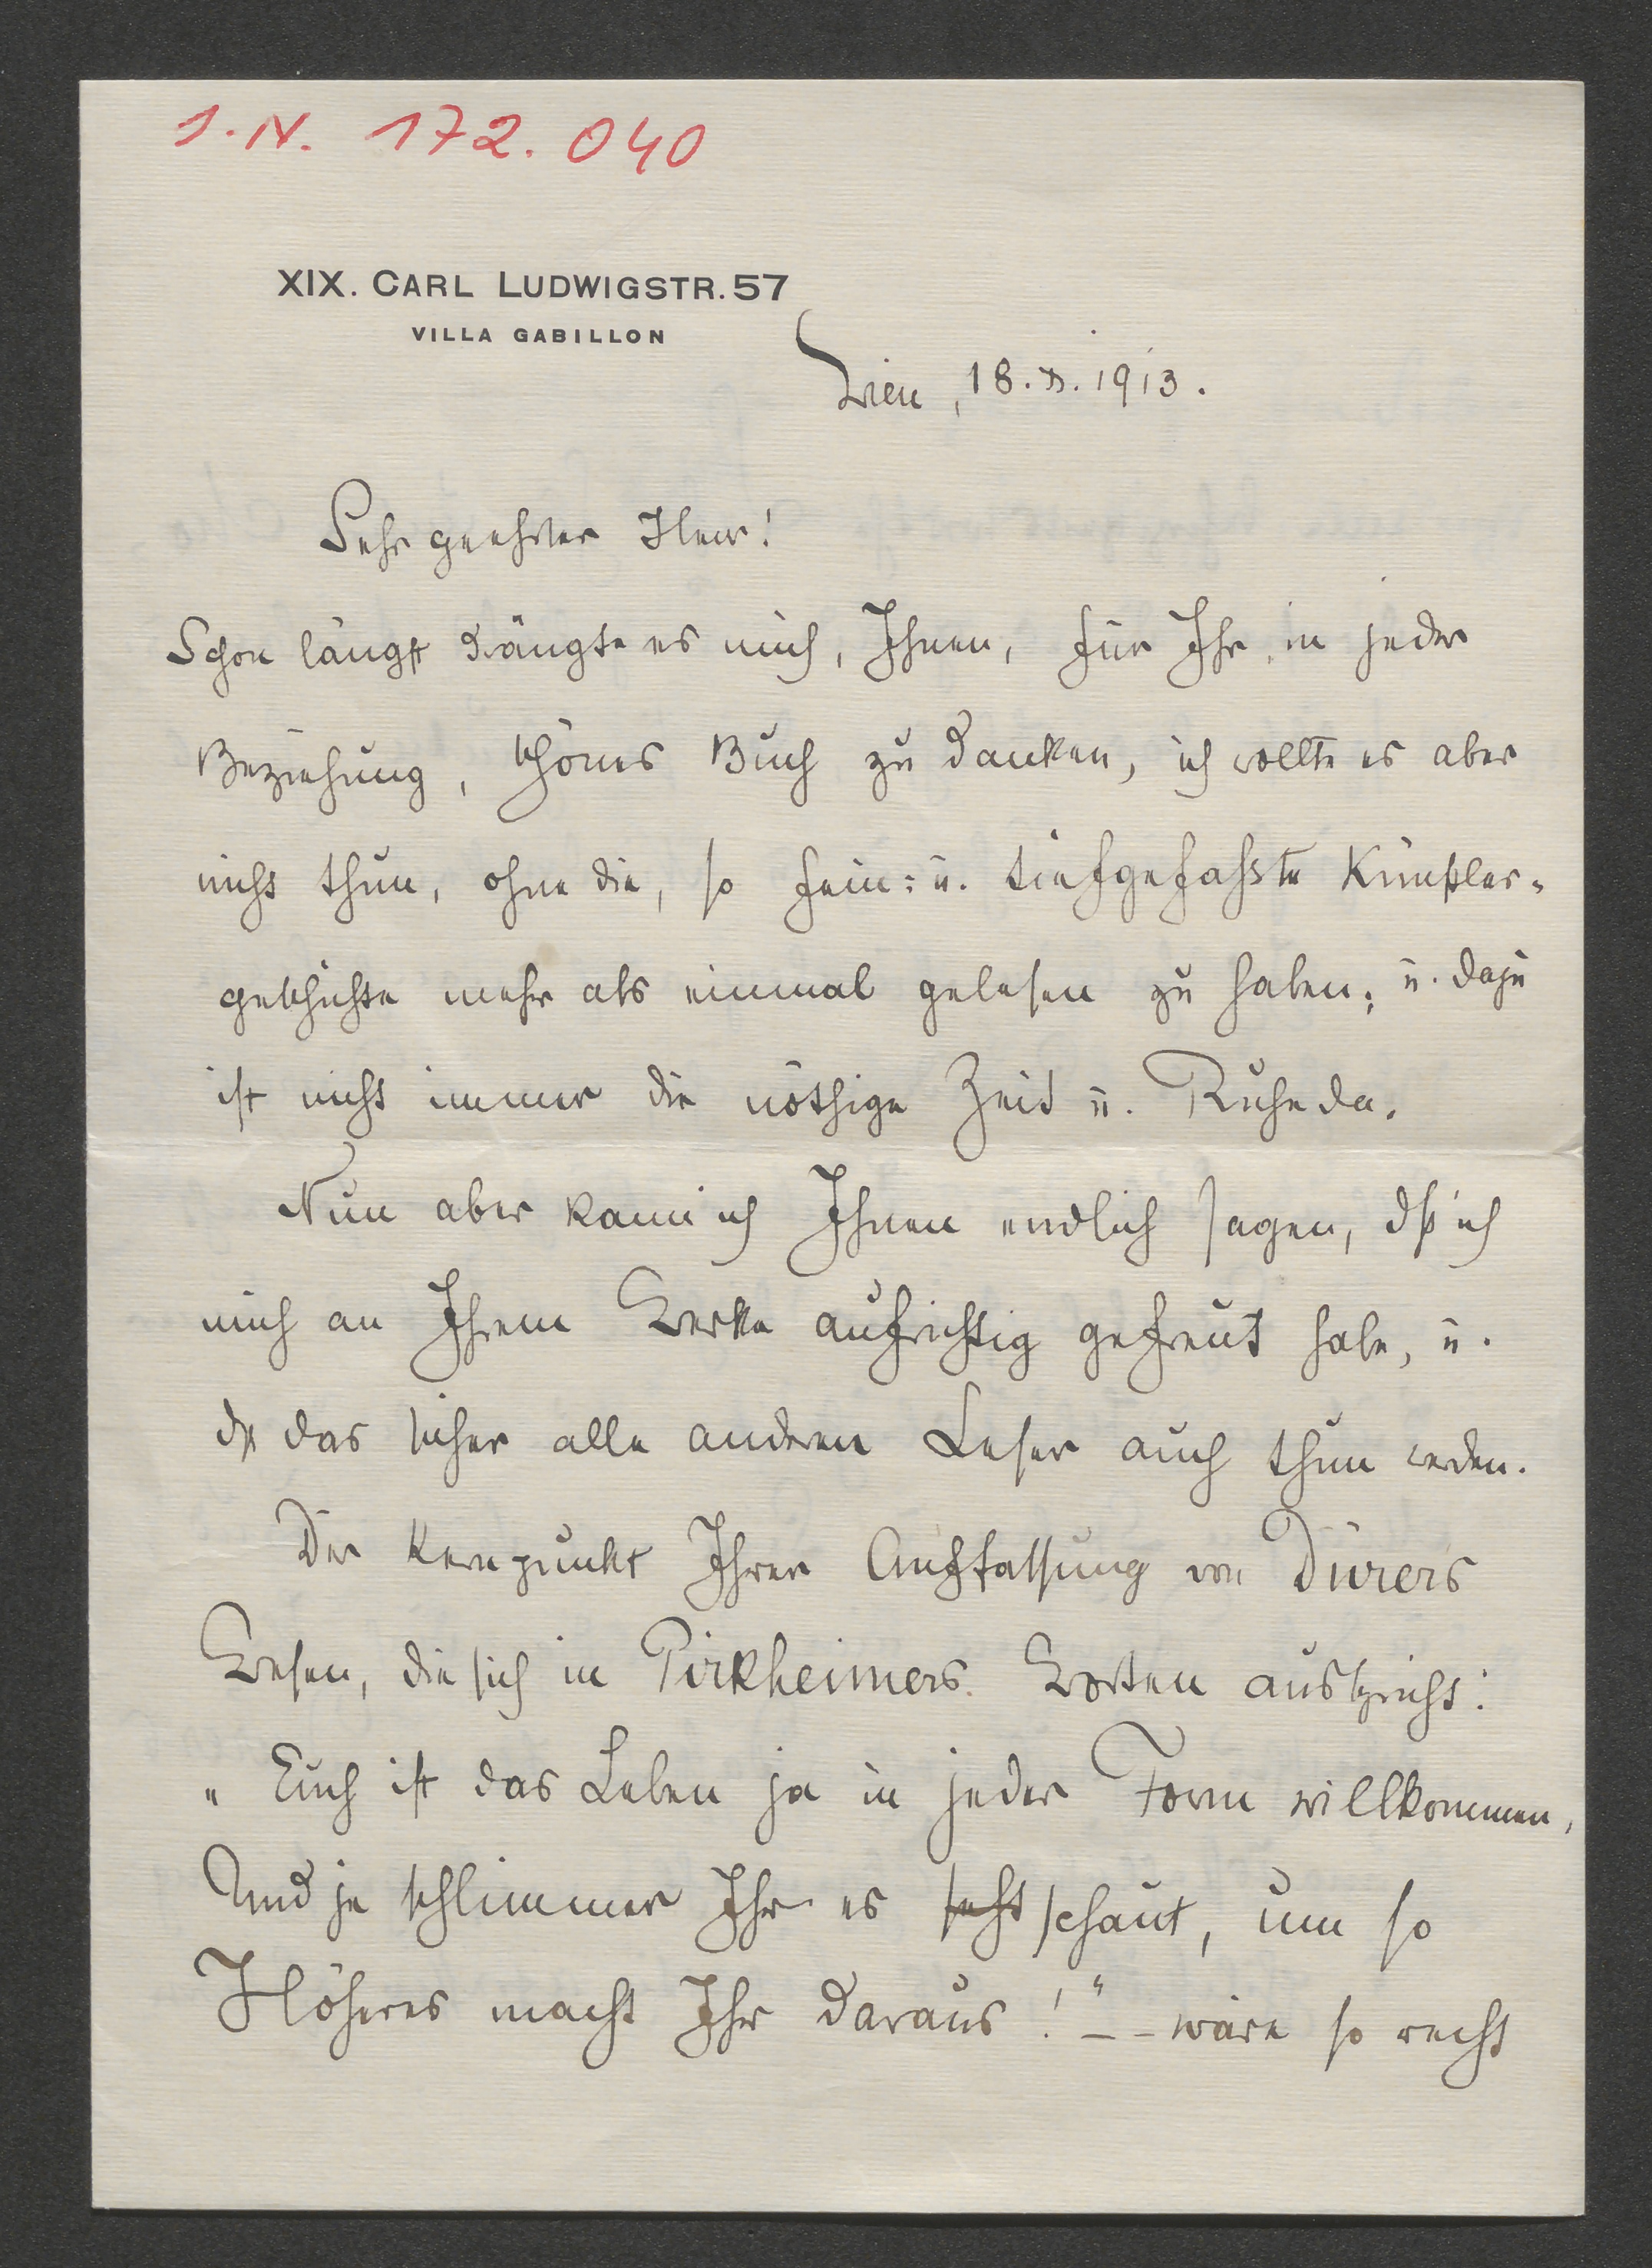 J.N. 172.040
XIX. CARL LUDWIGSTR. 57
VILLA GABILLON
Wien, 18. X. 1913.
Sehr geehrter Herr!
Schon längst drängte es mich, Ihnen, für Ihr, in jeder
Beziehung, schönes Buch zu danken, ich wollte es aber
nicht thun, ohne die, so fein= u. tiefgefasste Künstler=
geschichte mehr als einmal gelesen zu haben; u. dazu
ist nicht immer die nöthige Zeit u. Ruhe da.
Nun aber kann ich Ihnen endlich sagen, dß ich
mich an Ihrem Werke aufrichtig gefreut habe, u.
dß das sicher alle anderen Leser auch thun werden.
Der Kernpunkt Ihrer Auffassung von Dürers
Wesen, die sich in Pirkheimers Worten ausspricht:
„Euch ist das Leben ja in jeder Form willkommen,
Und je schlimmer Ihr es seht schaut, um so
Höheres macht Ihr daraus!" – – wäre so recht